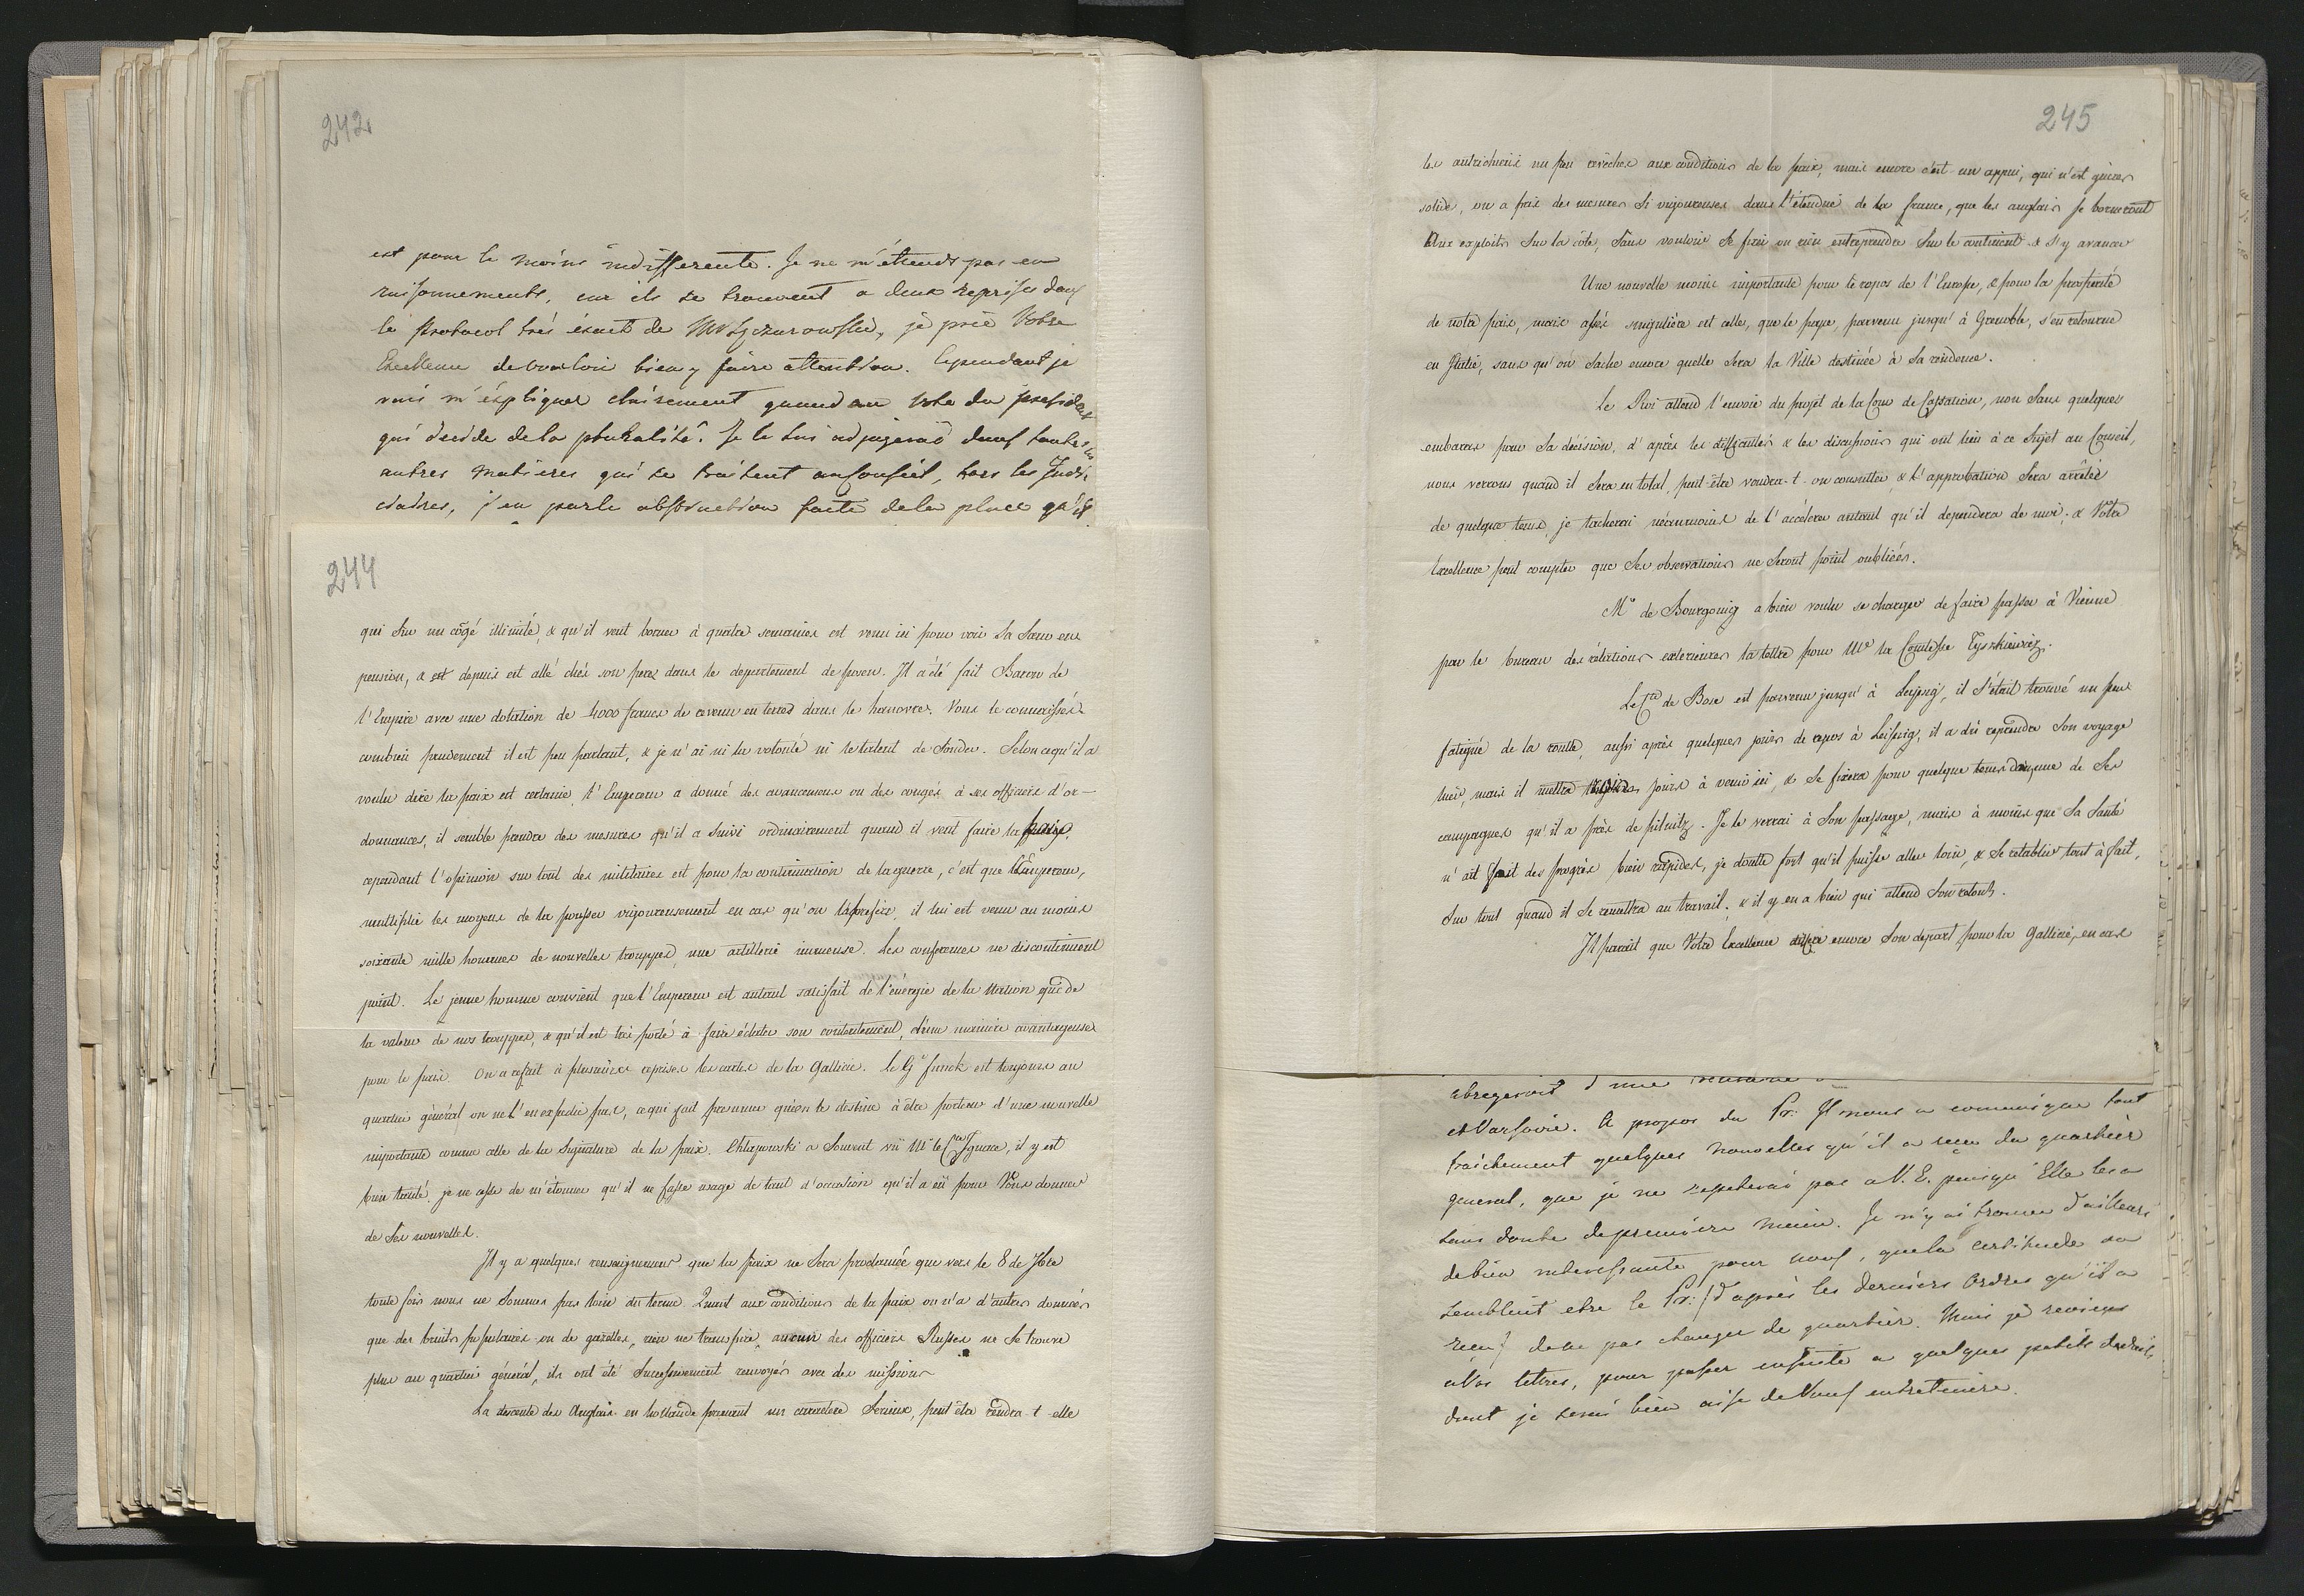 242
est pour le moins indifferente. Je ne m'étends pas en
raisonnements, car ils se trouvent a deux reprises dans
le Protocol très éxact de Mr je prie Votre
Excellence de vouloir bien y faire attention. Cependant je
vais m'éxpliquer clairement quand au vote du president
qui decide de la pluralité. Je le lui adjugerai dans toutes les
autres matieres qui se traitent au Conseil, hors les Judi-
ciaires, j'en parle abstraction faite de la place qu'il
244
qui sur un cõgé illimité, & qu'il veut borner à quatre semaines est venu ici pour voir Sa Sœur en
pension, & est depuis est allé chés son pere dans le departement de posen. Il a été fait Baron de
l'Empire avec une dotation de 4000 francs de revenu en terres dans le hanovre. Vous le connaissés
combien prudemment il est peu parlant, & je n'ai ni la volonté ni le talent de Sonder. Selon ce qu'il a
voulu dire la paix est certaine, l'Empereur a donné des avancemens ou des congés à ses officiers d'or-
donnances, il semble prendre des mesures qu'il a suivi ordinairement quand il veut faire la paix,
cependant l'opinion sur tout des militaires est pour la continuation de la guerre, c'est que l'Empereur,
multiplie les moyens de la pousser vigoureusement en cas qu'on la prefère, il lui est venu au moins
soixante mille hommes de nouvelles trouppes, une artillerie immense. Les conferences ne discontinuent
point. Le jeune homme convient que l'Empereur est autant satisfait de l'énergie de la Nation que de
la valeur de nos trouppes, & qu'il est très porté à faire éclater son contentement, d'une manière avantageuse
pour le pais. On a refait à plusieurs reprises les cartes de la Gallicie. Le Gl funck est toujours au
quartier général on ne l'en expedie pas, ce qui fait presumer qu'on le destine à être porteur d'une nouvelle
importante comme celle de la Signature de la paix. Chlapowski a Souvent vû Mr le Cte Ignace, il y est
bien traité, je ne cesse de m'étonner qu'il ne fasse usage de tant d'occasion qu'il a eû pour Vous donner
de Ses nouvelles.
Il y a quelques renseignemens que la paix ne Sera proclamée que vers le 8 de 7bre
toute fois nous ne Sommes pas loin du terme. Quant aux conditions de la paix on n'a d'autres données
que des bruits populaires ou de gazettes, rien ne transpire, aucun des officiers Russes ne Se trouve
plus au quartier général, ils ont été Successivement renvoyés avec des missions
La descente des Anglais en hollande prenant un caractere Serieux, peut être rendra-t-elle
245
les autrichiens un peu revêches aux conditions de la paix, mais encore c'est un appui, qui n'est guères
solide, on a pris des mesures Si vigoureuses dans l'étendue de la france, que les anglais Se borneront
Aux exploits Sur la côte, Sans vouloir Se fier ou rien entreprendre Sur le continent & S'y avancer
Une nouvelle moins importante pour le repos de l'Europe, & pour la prosperité
de notre pais, mais assés singulière est celle, que le pape, parvenu jusqu'à Grenoble, s'en retourne
en Italie, sans qu'on Sache encore quelle Sera la Ville destinée à Sa residence.
Le Roi attend l'envoie du projet de la Cour de Cassation, non Sans quelques
embaras pour Sa décision, d'après les difficultés & les discussions qui ont lieu à ce Sujet au Conseil,
nous verrons quand il Sera en total, peut-être voudra-t-on consulter, & l'approbation Sera arrêtée
de quelque tems, je tacherai néanmoins de l'accélerer autant qu'il dependra de moi; & Votre
Excellence peut compter que Ses observations ne Seront point oubliées.
Mr de Bourgoing a bien voulu se charger de faire passer à Vienne
par le bureau des rélations exterieures la lettre pour Me la Comtesse Tyszkiewicz.
Le Cte de Bose est parvenu jusqu'à Leipzig, il S'était trouvé un peu
fatigué de la route, aussi après quelques jours de repos à Leipzig, il a dû reprendre Son voyage
hier, mais il mettra jours à venir ici, & Se fixera pour quelque tems dans une de Ses
campagnes qu'il a près de pilnitz. Je le verrai à Son passage, mais à moins que Sa Santé
n'ait fait des progrès bien rapides, je doutte fort qu'il puisse aller loin, & Se retablir tout à fait,
Sur tout quand il Se remettra au travail, & il y en a bien qui attend Son retour.
Il parait que Votre Excellence differe encore Son depart pour la Gallicie, en cas
abregeroit d'une
et Varsovie. A propos du Pr: Il nous a comunique tout
fraichement quelques nouvelles qu'il a reçu du quartier
general, que je ne repeterai pas a V. E. puisqu'Elle les a
sans doute de première main. Je n'y ai trouvé d'ailleurs
de bien interessante pour nous, que la certitude ou
sembloit etre le Pr: (d'après les derniers Ordres qu'il a
reçu) de ne pas changer de quartier. Mais je reviens
a Vos lettres, pour passer ensuite a quelques petits details,
dont je serai bien aise de Vous entretenir.